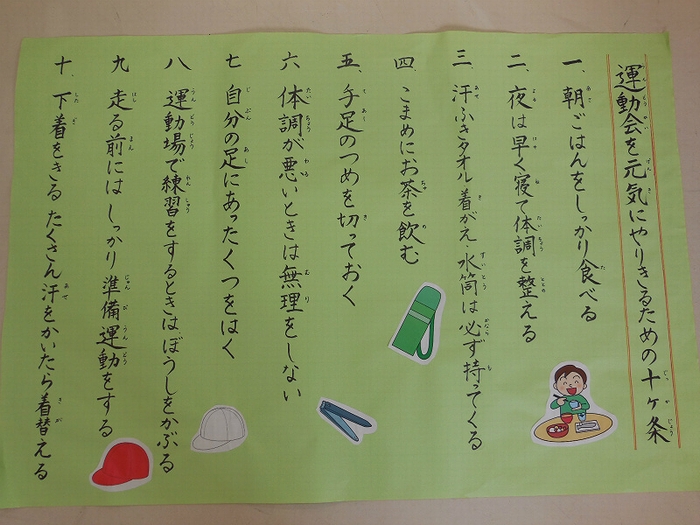 運動会を元気にやりきるための十ヶ条
一、朝ごはんをしっかり食べる
二、夜は早く寝て体調を整える
三 汗ふきタオル 着がえ・水筒は必ず持ってくる
四、こまめにお茶を飲む
五、手足のつめを切っておく
六 体調が悪いときは無理をしない
七 自分の足にあったくつをはく
八 運動場で練習をするときはぼうしをかぶる
九 走る前には しっかり準備運動をする
十、下着をきる たくさん汗をかいたら着替える